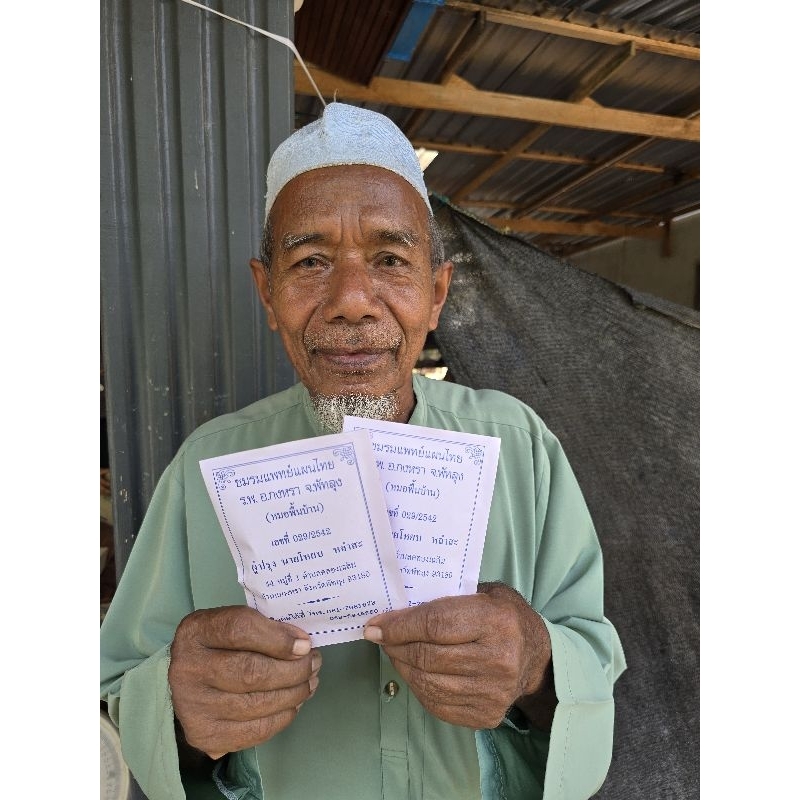 ชมรมแพทย์แผนไทย
ร.พ. อ.กงหรา จ.พัทลุง
(หมอพื้นบ้าน)
เลขที่ 029/2542
ผู้ปรุง นายโหยบ หลำสะ
หมู่ที่ 1 ตำบลคลองเฉลิม
อำเภอกงหรา จังหวัดพัทลุง 93180
ชมรมแพทย์แผนไทย
ร.พ. อ.กงหรา จ.พัทลุง
(หมอพื้นบ้าน)
เลขที่ 029/2542
หลำสะ